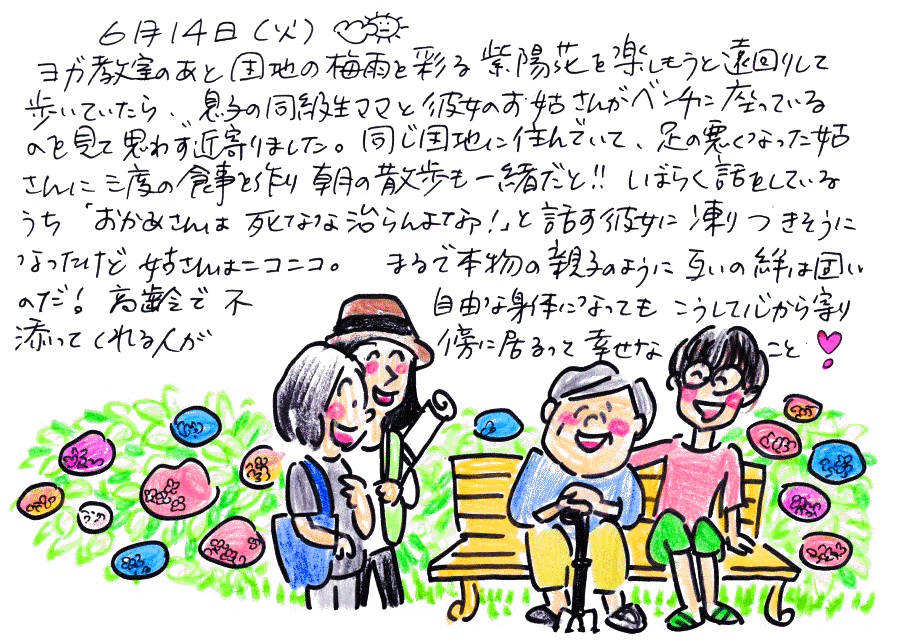 6月14日（火）
ヨガ教室のあと団地の梅雨を彩る紫陽花を楽しもうと遠回りして
歩いていたら、息子の同級生ママと彼女のお姑さんがベンチに座っている
のを見て思わず近寄りました。同じ団地に住んでいて、足の悪くなった姑
さんに三度の食事を作り朝の散歩も一緒だと!! しばらく話をしている
うち「おかあさんは死ななな治らんよなあ!」と話す彼女に凍りつきそうに
なったけど姑さんはニコニコ。 まるで本物の親子のように互いの絆は固い
のだ! 高齢で不自由な身体になってもこうして心から寄り
添ってくれる人が傍に居るって幸せなこと